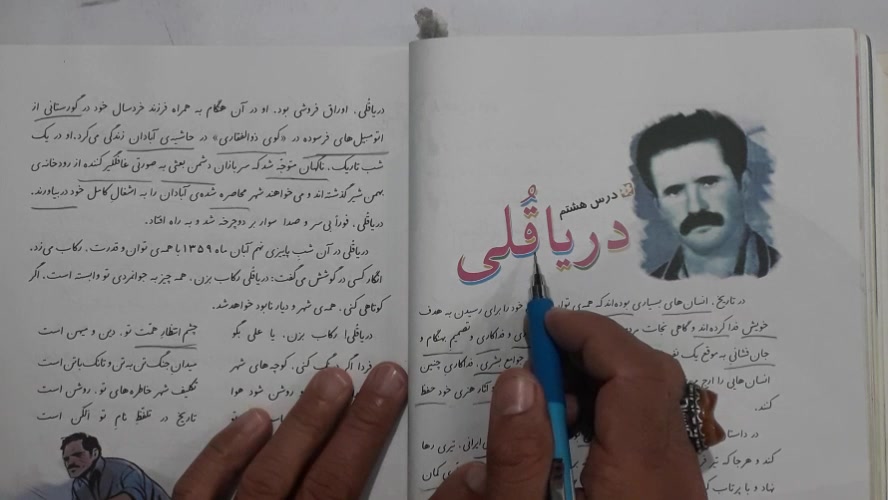 درس هشتم
دریاقُلی
در تاریخ، انسان های بسیاری بوده‌اند که همه‌ی توان خود را برای رسیدن به هدف
خویش فدا کرده‌اند و گاهی نجات و فداکاری و تصمیم بهنگام و
جان فشانی به موقع یک جوامع بشری، فداکاری چنین
انسان هایی را ارج آثار هنری خود حفظ
کنند.
در داستان ایرانی، تیری رها
کند و هر جا که تیر
نهاد و با پرتاب کمان
دریاقلی، اوراق فروشی بود. او در آن هنگام به همراه فرزند خردسال خود در گورستانی از
اتومبیل های فرسوده در «کوی ذوالفقاری» در حاشیه‌ی آبادان زندگی می‌کرد. او در یک
شب تاریک، ناگهان متوجّه شد که سربازان دشمن بعثی به صورتی غافلگیر کننده از رودخانه‌ی
بهمن شیر گذشته‌اند و می‌خواهند شهر محاصره شده‌ی آبادان را به اشغال کامل خود دربیاورند.
دریاقلی، فوراً بی سر و صدا سوار بر دوچرخه شد و به راه افتاد.
دریاقلی در آن شبِ پاییزی نهم آبان ماه ۱۳۵۹ با همه‌ی توان و قدرت، رکاب می‌زد.
انگار کسی در گوشش می‌گفت: دریاقلی رکاب بزن، همه چیز به جوانمردی تو وابسته است. اگر
کوتاهی کنی، همه‌ی شهر و دیار نابود خواهد شد.
دریاقلی! رکاب بزن، یا علی بگو چشم انتظارِ همّت تو، دین و میهن است
فردا اگر درنگ کنی، کوچه های شهر میدان جنگ تن به تن و تانک با تن است
روشن شود هوا تکلیف شهر خاطره های تو، روشن است
تاریخ در تلفّظ نامِ تو الکن است